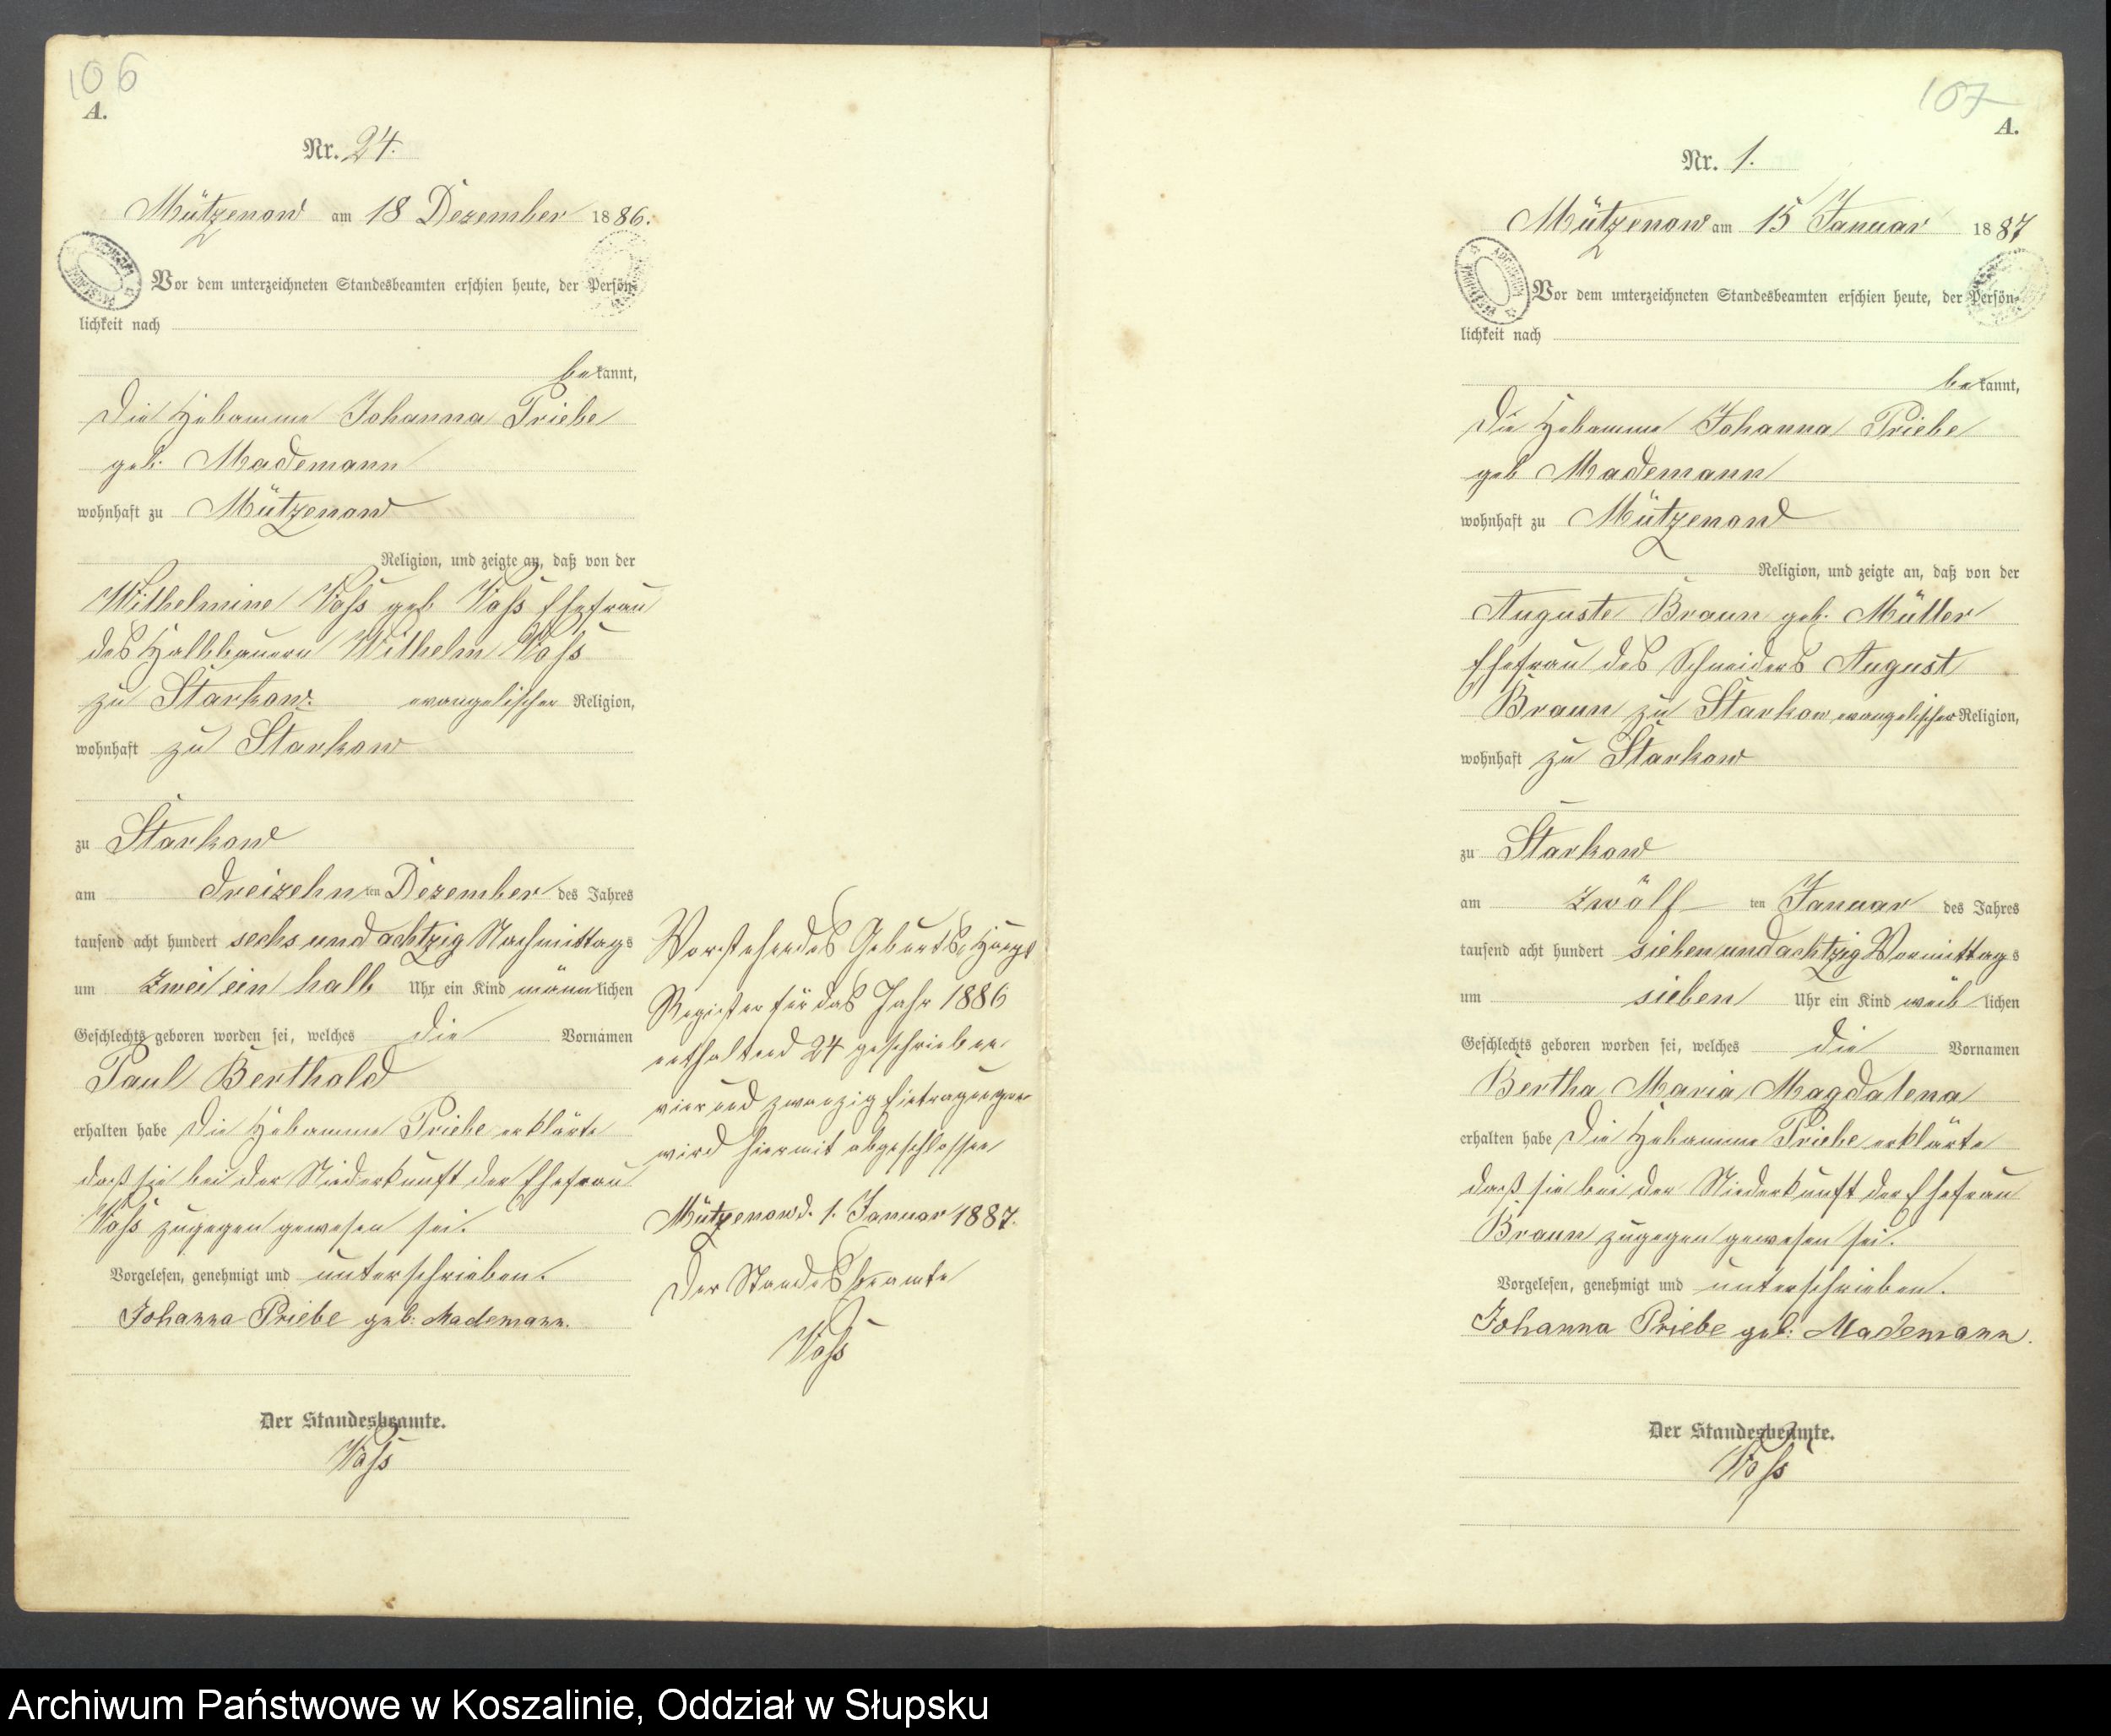 106
A.
Nr. 24.
Mützenow am 18 Dezember 1886.
Vor dem unterzeichneten Standesbeamten erschien heute, der Persön-
lichkeit nach
bekannt,
die Hebamme Johanna Priebe
geb. Mademann
wohnhaft zu Mützenow
Religion, und zeigte an, daß von der
Wilhelmine Voss geb. Voss Ehefrau
des Halbbauern Wilhelm Voss
zu Starkow. evangelischer Religion,
wohnhaft zu Starkow
zu Starkow
am dreizehnten Dezember des Jahres
tausend acht hundert sechs und achtzig Nachmittags
um zwei ein halb Uhr ein Kind männlichen
Geschlechts geboren worden sei, welches die Vornamen
Paul Berthold
erhalten habe Die Hebamme Priebe erklärte
daß sie bei der Niederkunft der Ehefrau
Voss zugegen gewesen sei.
Vorgelesen, genehmigt und unterschrieben.
Johanna Priebe geb: Mademann.
Der Standesbeamte.
Voss
Vorstehendes Geburts-Haupt
Register für das Jahr 1886
enthaltend 24 geschrieben
vier und zwanzig Eintragungen
wird hiermit abgeschlossen
Mützenow d. 1. Januar 1887.
Der Standesbeamte
Voss
107
A.
Nr. 1.
Mützenow am 15 Januar 1887
Vor dem unterzeichneten Standesbeamten erschien heute, der Persön-
lichkeit nach
bekannt,
die Hebamme Johanna Priebe
geb Mademann
wohnhaft zu Mützenow
Religion, und zeigte an, daß von der
Auguste Braun geb. Müller
Ehefrau des Schneiders August
Braun zu Starkow evangelischer Religion,
wohnhaft zu Starkow
zu Starkow
am zwölften Januar des Jahres
tausend acht hundert sieben und achtzig Vormittags
um sieben Uhr ein Kind weiblichen
Geschlechts geboren worden sei, welches die Vornamen
Bertha Maria Magdalena
erhalten habe Die Hebamme Priebe erklärte
daß sie bei der Niederkunft der Ehefrau
Braun zugegen gewesen sei.
Vorgelesen, genehmigt und unterschrieben.
Johanna Priebe geb: Mademann.
Der Standesbeamte.
Voss
Archiwum Państwowe w Koszalinie, Oddział w Słupsku